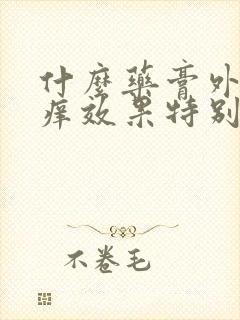 什麼藥膏外
痒效果特别
不卷毛